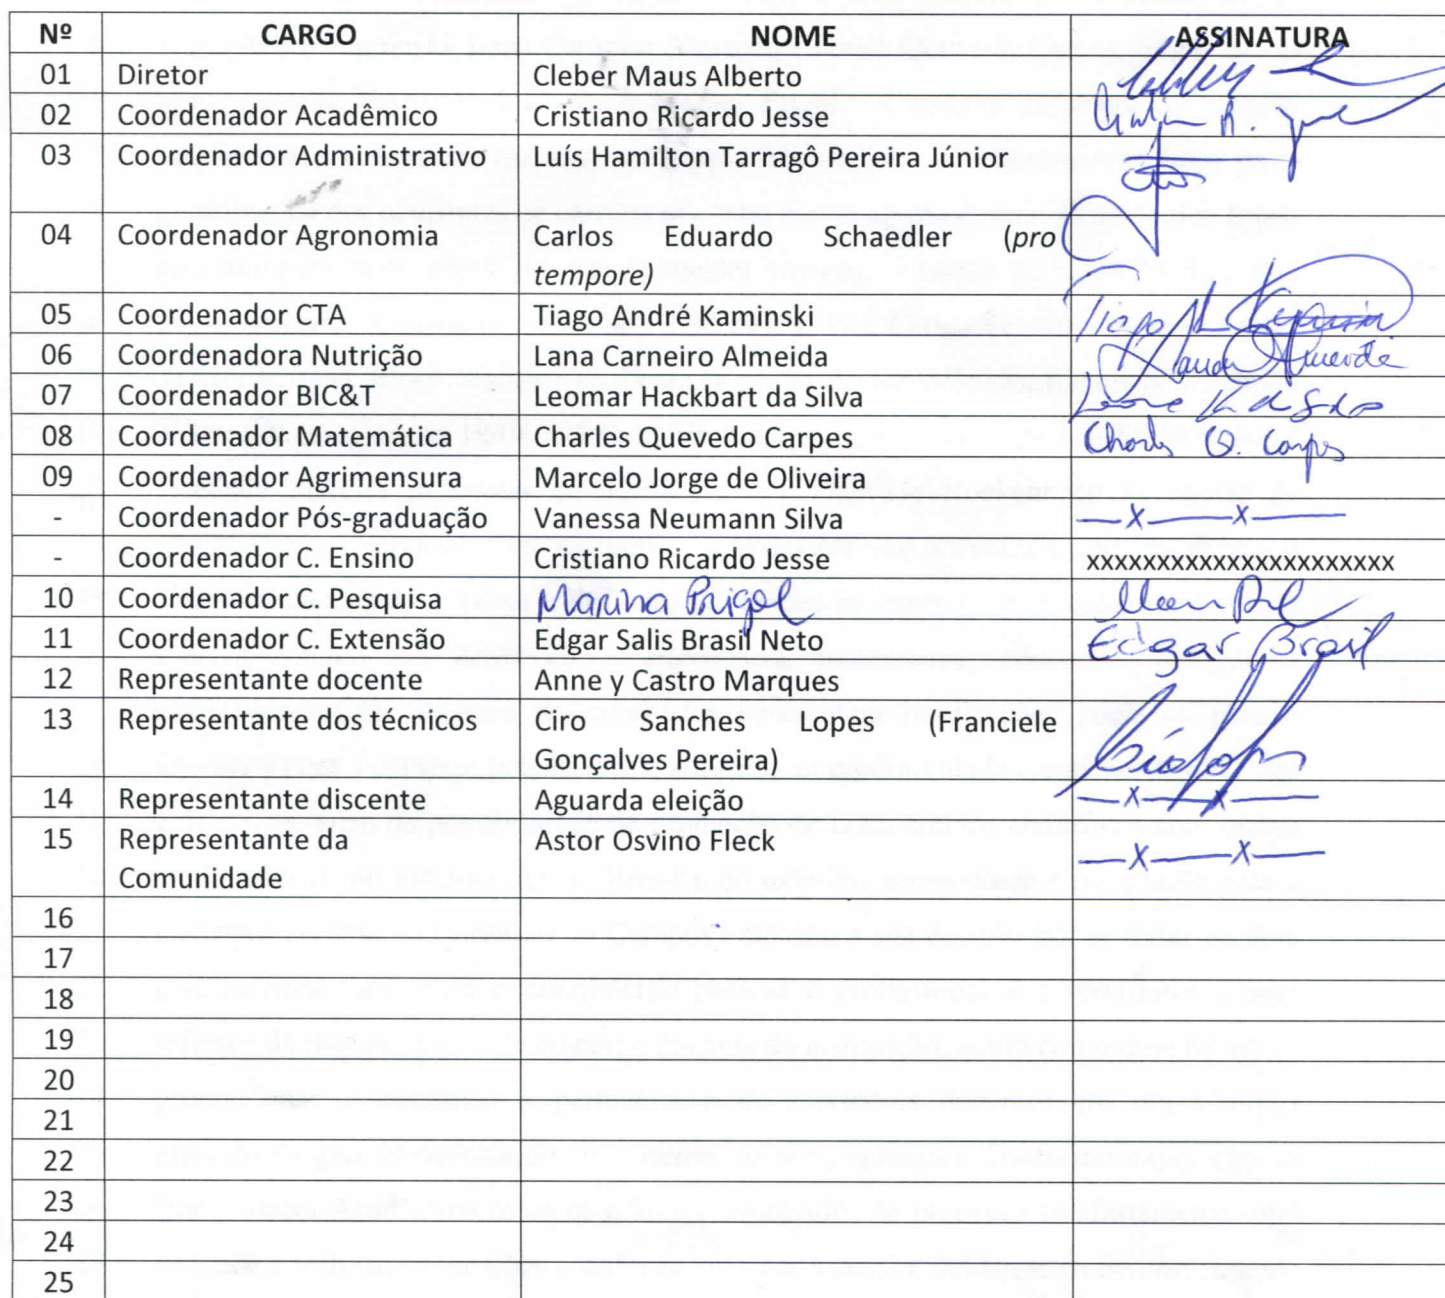 Nº CARGO NOME ASSINATURA
01 Diretor Cleber Maus Alberto
02 Coordenador Acadêmico Cristiano Ricardo Jesse
03 Coordenador Administrativo Luís Hamilton Tarragô Pereira Júnior
04 Coordenador Agronomia Carlos Eduardo Schaedler (pro
tempore)
05 Coordenador CTA Tiago André Kaminski Tiago
06 Coordenadora Nutrição Lana Carneiro Almeida
07 Coordenador BIC&T Leomar Hackbart da Silva
08 Coordenador Matemática Charles Quevedo Carpes Charles Q. Carpes
09 Coordenador Agrimensura Marcelo Jorge de Oliveira
- Coordenador Pós-graduação Vanessa Neumann Silva —x——x—
- Coordenador C. Ensino Cristiano Ricardo Jesse xxxxxxxxxxxxxxxxxxxxxx
10 Coordenador C. Pesquisa Marina Prigol
11 Coordenador C. Extensão Edgar Salis Brasil Neto Edgar Brasil
12 Representante docente Anne y Castro Marques
13 Representante dos técnicos Ciro Sanches Lopes (Franciele
Gonçalves Pereira)
14 Representante discente Aguarda eleição —x——x—
15 Representante da Astor Osvino Fleck —x——x—
Comunidade
16
17
18
19
20
21
22
23
24
25